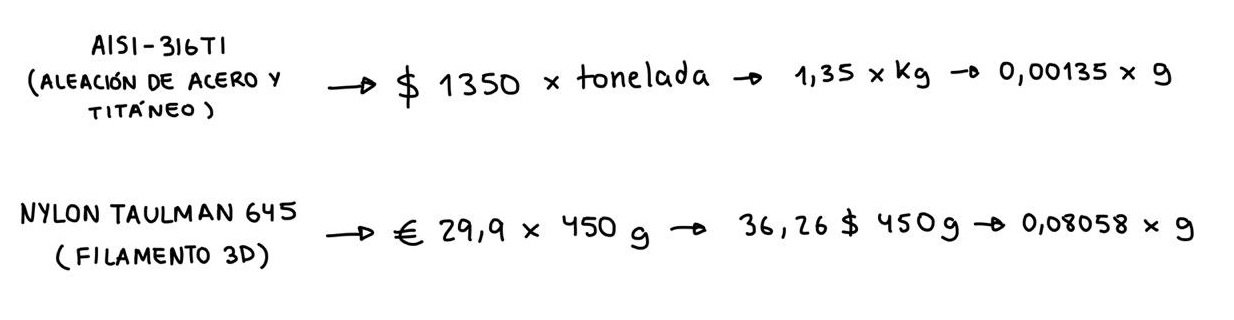 AISI-316TI
(ALEACIÓN DE ACERO Y
TITÁNEO)
→ $ 1350 × tonelada → 1,35 × Kg → 0,00135 × g
NYLON TAULMAN 645
(FILAMENTO 3D)
→ € 29,9 × 450 g → 36,26 $ 450g → 0,08058 × g